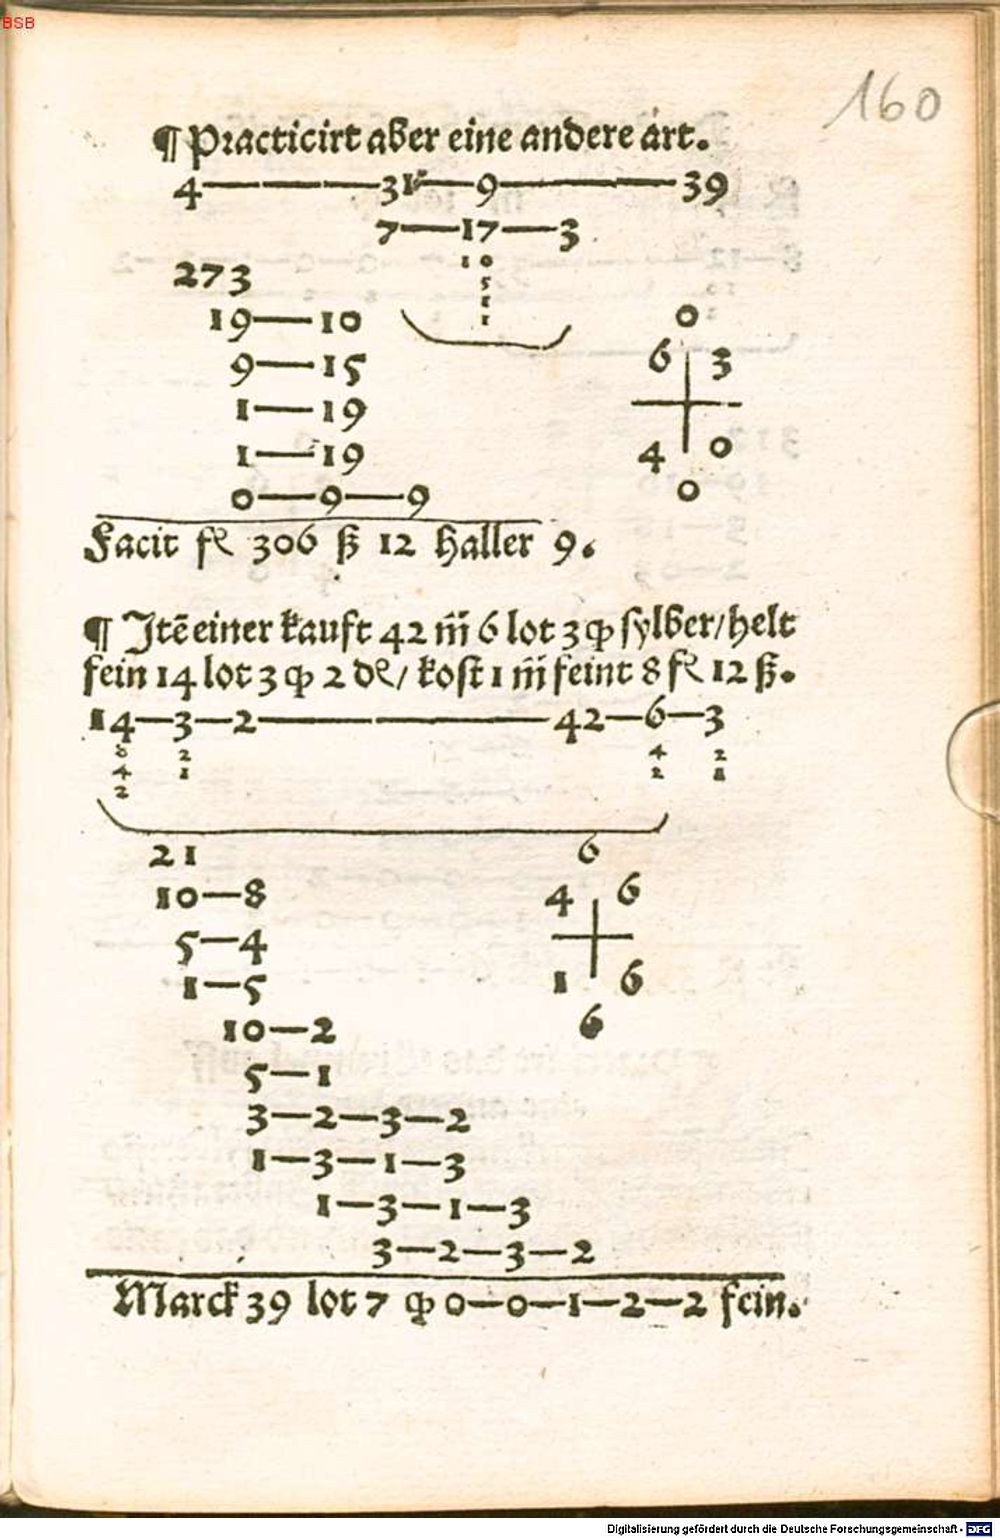 BSB
160
¶ Practicirt aber eine andere art.
4 — 31 — 9 — 39
7—17—3
1 0
5
1
1
273
19—10
9—15
1—19
1—19
0—9—9
0
6 3
4 0
0
Facit fl 306 ß 12 haller 9.
¶ Jtē einer kauft 42 m̄ 6 lot 3 qͥ sylber/helt
fein 14 lot 3 qͥ 2 dl/ kost 1 m̄ feint 8 fl 12 ß.
14—3—2 — 42—6—3
8 2 4 2
4 1 2 1
2
21
10—8
5—4
1—5
10—2
5—1
3—2—3—2
1—3—1—3
1—3—1—3
3—2—3—2
6
4 6
1 6
6
Marck 39 lot 7 qͥ 0—0—1—2—2 fein.
Digitalisierung gefördert durch die Deutsche Forschungsgemeinschaft - DFG